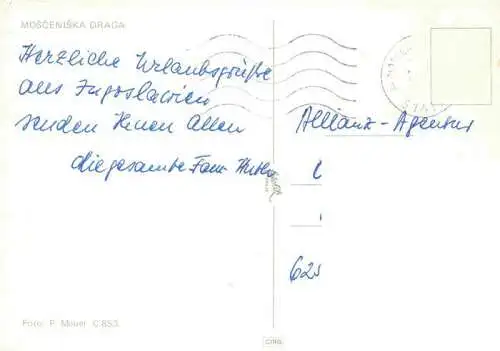 MOŠĆENIŠKA DRAGA
Herzliche Urlaubsgrüße
aus Jugoslawien
senden Ihnen Allen
die gesamte Fam.
Allianz-Agentur
625
Foto: P. Mauer C 853